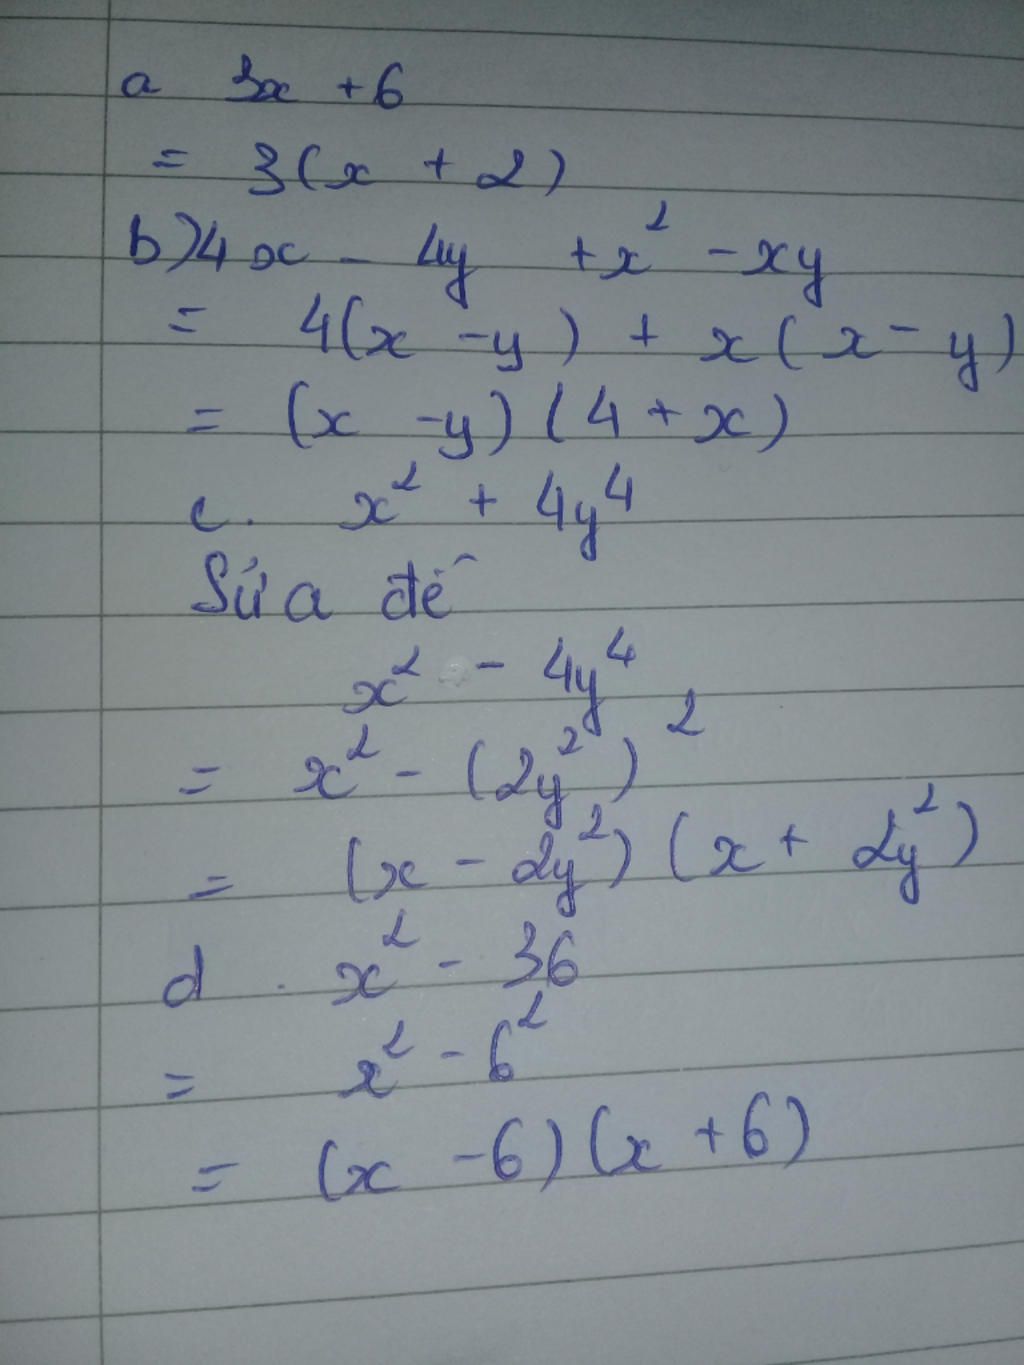 a 3x + 6
= 3(x + 2)
b) 4x - 4y + x² - xy
= 4(x - y) + x(x - y)
= (x - y)(4 + x)
c. x² + 4y⁴
Sửa đề
x² - 4y⁴
= x² - (2y²)²
= (x - 2y²)(x + 2y²)
d. x² - 36
= x² - 6²
= (x - 6)(x + 6)